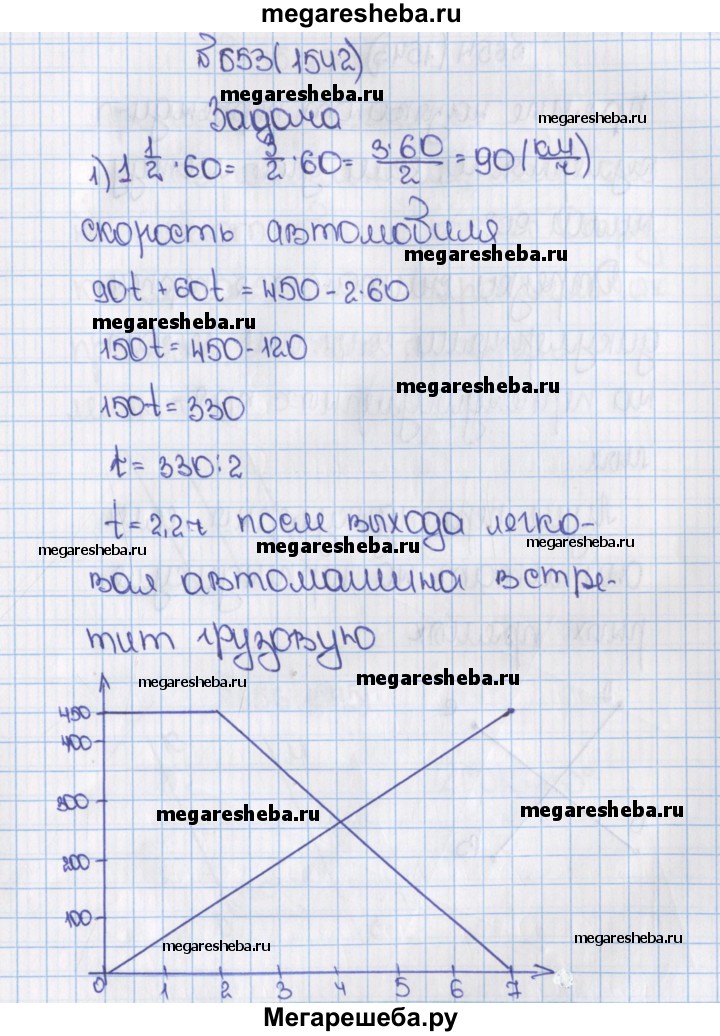 megaresheba.ru
№ 653 (1542)
megaresheba.ru
Задача
megaresheba.ru
1) 1 1/2 · 60 = 3/2 · 60 = 3·60/2 = 90 (км/ч)
скорость автомобиля
megaresheba.ru
90t + 60t = 450 - 2·60
megaresheba.ru
150t = 450 - 120
megaresheba.ru
150t = 330
t = 330 : 2
t = 2,2 ч после выхода легко-
megaresheba.ru megaresheba.ru megaresheba.ru
вая автомашина встре-
тит грузовую
megaresheba.ru megaresheba.ru
450
400
300
megaresheba.ru megaresheba.ru
200
100
megaresheba.ru megaresheba.ru
0 1 2 3 4 5 6 7
Мегарешеба.ру